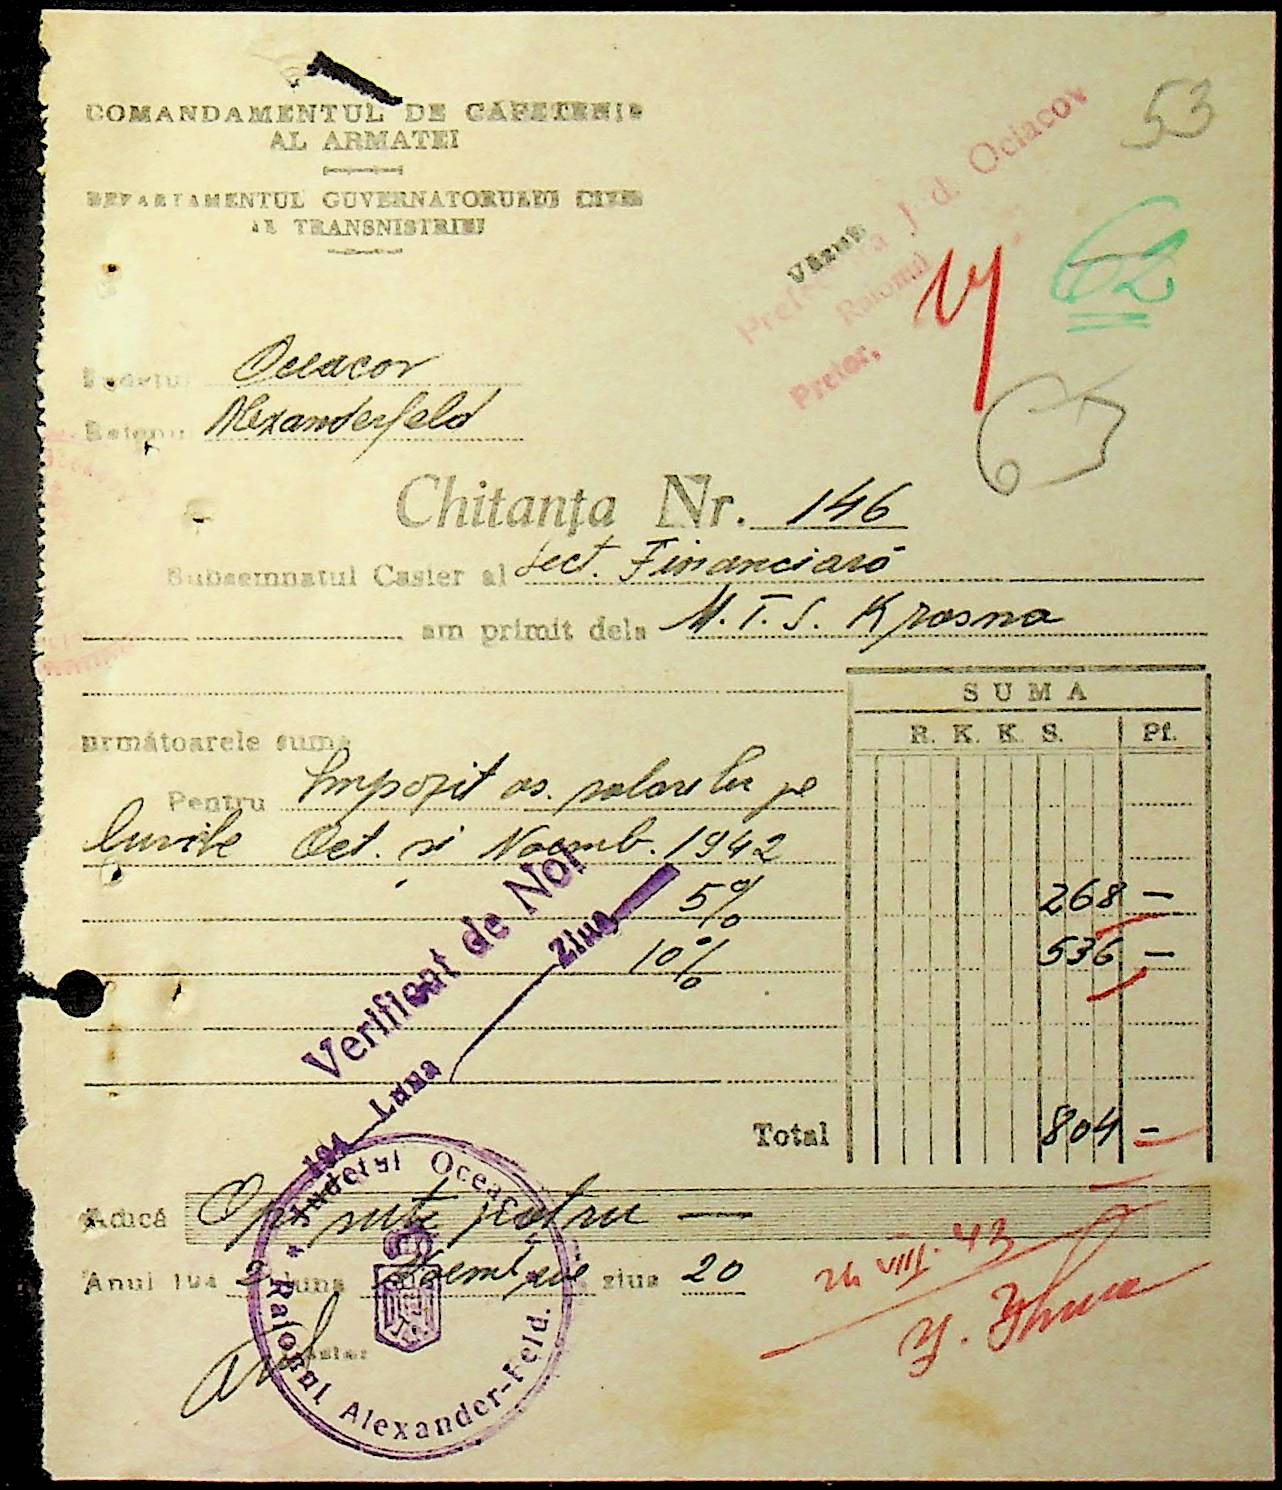 COMANDAMENTUL DE CAPETENIE
AL ARMATEI
DEPARTAMENTUL GUVERNATORULUI CIVIL
AL TRANSNISTRIEI
53
Văzut,
Prefectura Jud. Ociacov
Raionul
Pretor,
62
Judetul Oceacov
Raionul Alexanderfeld
Chitanța Nr. 146
Subsemnatul Casier al Sect. Financiară
am primit dela M.T.S. Krasna
SUMA
următoarele sume
R. K. K. S. Pf.
Pentru Impozit as. salariilor pe
lunile Oct. si Noemb. 1942
5% 268 —
10% 536 —
Verificat de Noi
194 Luna Ziua
Total 804 —
Adică Opt sute patru —
Anul 194 2 luna Noembrie ziua 20
Casier
Judetul Oceacov
Raionul Alexander-Feld.
26 VIII. 43